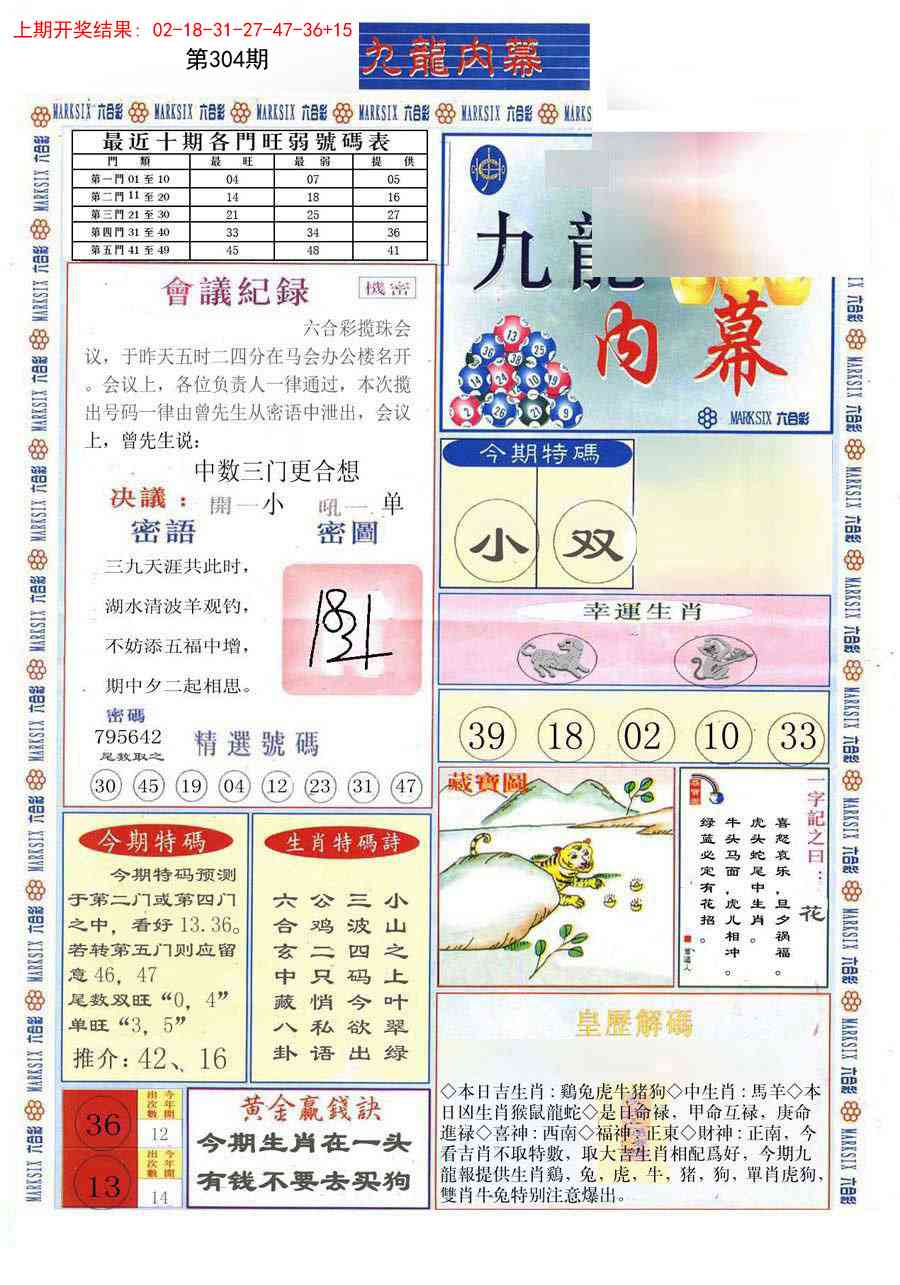 上期开奖结果: 02-18-31-27-47-36+15
第304期
九龍内幕
MARKSIX 六合彩 MARKSIX 六合彩 MARKSIX 六合彩 MARKSIX 六合彩 MARKSIX 六合彩 MARKS
最近十期各門旺弱號碼表
門類 最旺 最弱 提供
第一門01至10 04 07 05
第二門11至20 14 18 16
第三門21至30 21 25 27
第四門31至40 33 34 36
第五門41至49 45 48 41
九龍
内幕
MARKSIX 六合彩
會議紀録
機密
六合彩揽珠会
议，于昨天五时二四分在马会办公楼名开
。会议上，各位负责人一律通过，本次揽
出号码一律由曾先生从密语中泄出，会议
上，曾先生说：
中数三门更合想
决議：開一小 吼一单
密語 密圖
三九天涯共此时，
湖水清波羊观钓，
不妨添五福中增，
期中夕二起相思。
密碼
795642
尾数取之
精選號碼
30 45 19 04 12 23 31 47
今期特碼
小 双
幸運生肖
39 18 02 10 33
藏寶圖
一字記之曰：花
喜怒哀乐，旦夕祸福。
虎头蛇尾中生肖。
牛头马面，虎儿相冲。
绿蓝必定有花招。
今期特碼
今期特码预测
于第二门或第四门
之中，看好13.36。
若转第五门则应留
意46，47
尾数双旺“0，4”
单旺“3，5”
推介：42、16
生肖特碼詩
小山之上叶翠绿
三波四码今欲出
公鸡二只悄私语
六合玄中藏八卦
皇歷解碼
◇本日吉生肖：鷄兔虎牛猪狗◇中生肖：馬羊◇本
日凶生肖猴鼠龍蛇◇是日命禄，甲命互禄，庚命
進禄◇喜神：西南◇福神：正東◇財神：正南，今
看吉肖不取特數，取大吉生肖相配爲好，今期九
龍報提供生肖鷄，兔，虎，牛，猪，狗，單肖虎狗，
雙肖牛兔特别注意爆出。
36 今年開出次數 12
13 今年開出次數 14
黄金赢錢訣
今期生肖在一头
有钱不要去买狗